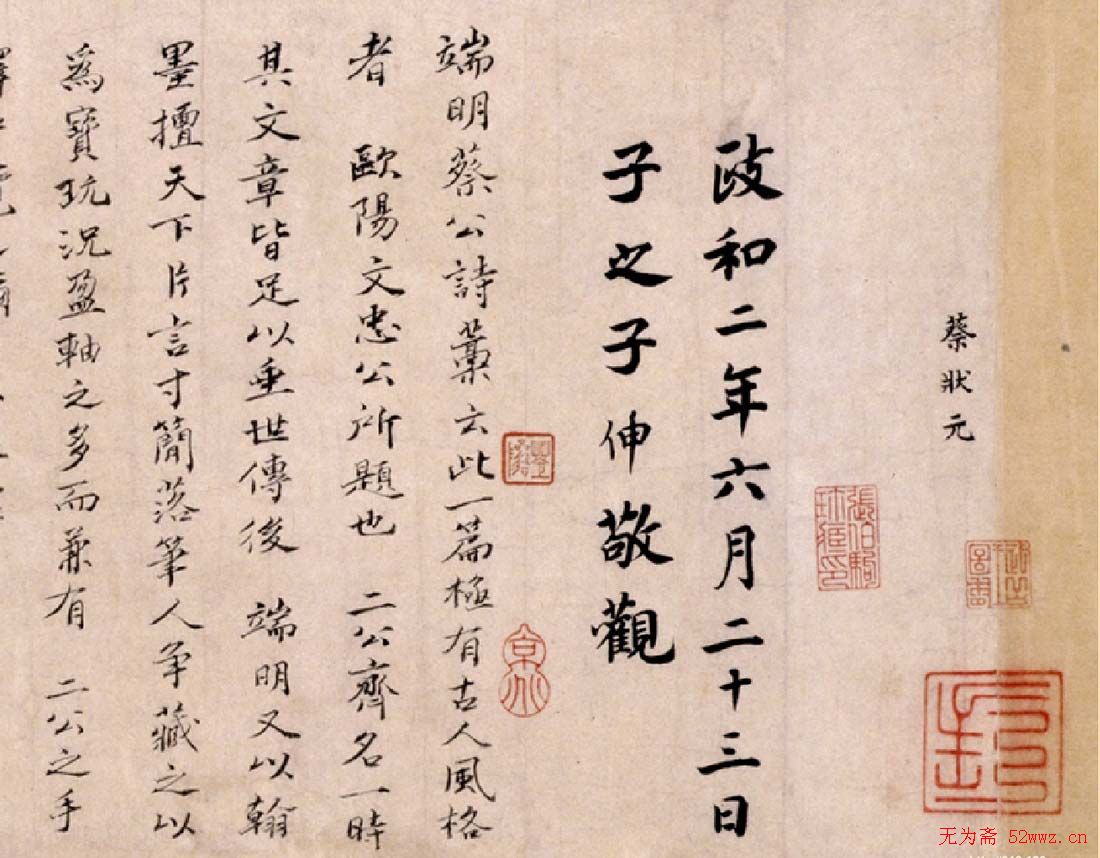 蔡狀元
政和二年六月二十三日
子之子伸敬觀
端明蔡公詩藁云此一篇極有古人風格
者　歐陽文忠公所題也　二公齊名一時
其文章皆足以垂世傳後　端明又以翰
墨擅天下片言寸簡落筆人争藏之以
爲寶玩況盈軸之多而兼有　二公之手
張伯駒
无为斋 52wwz.cn